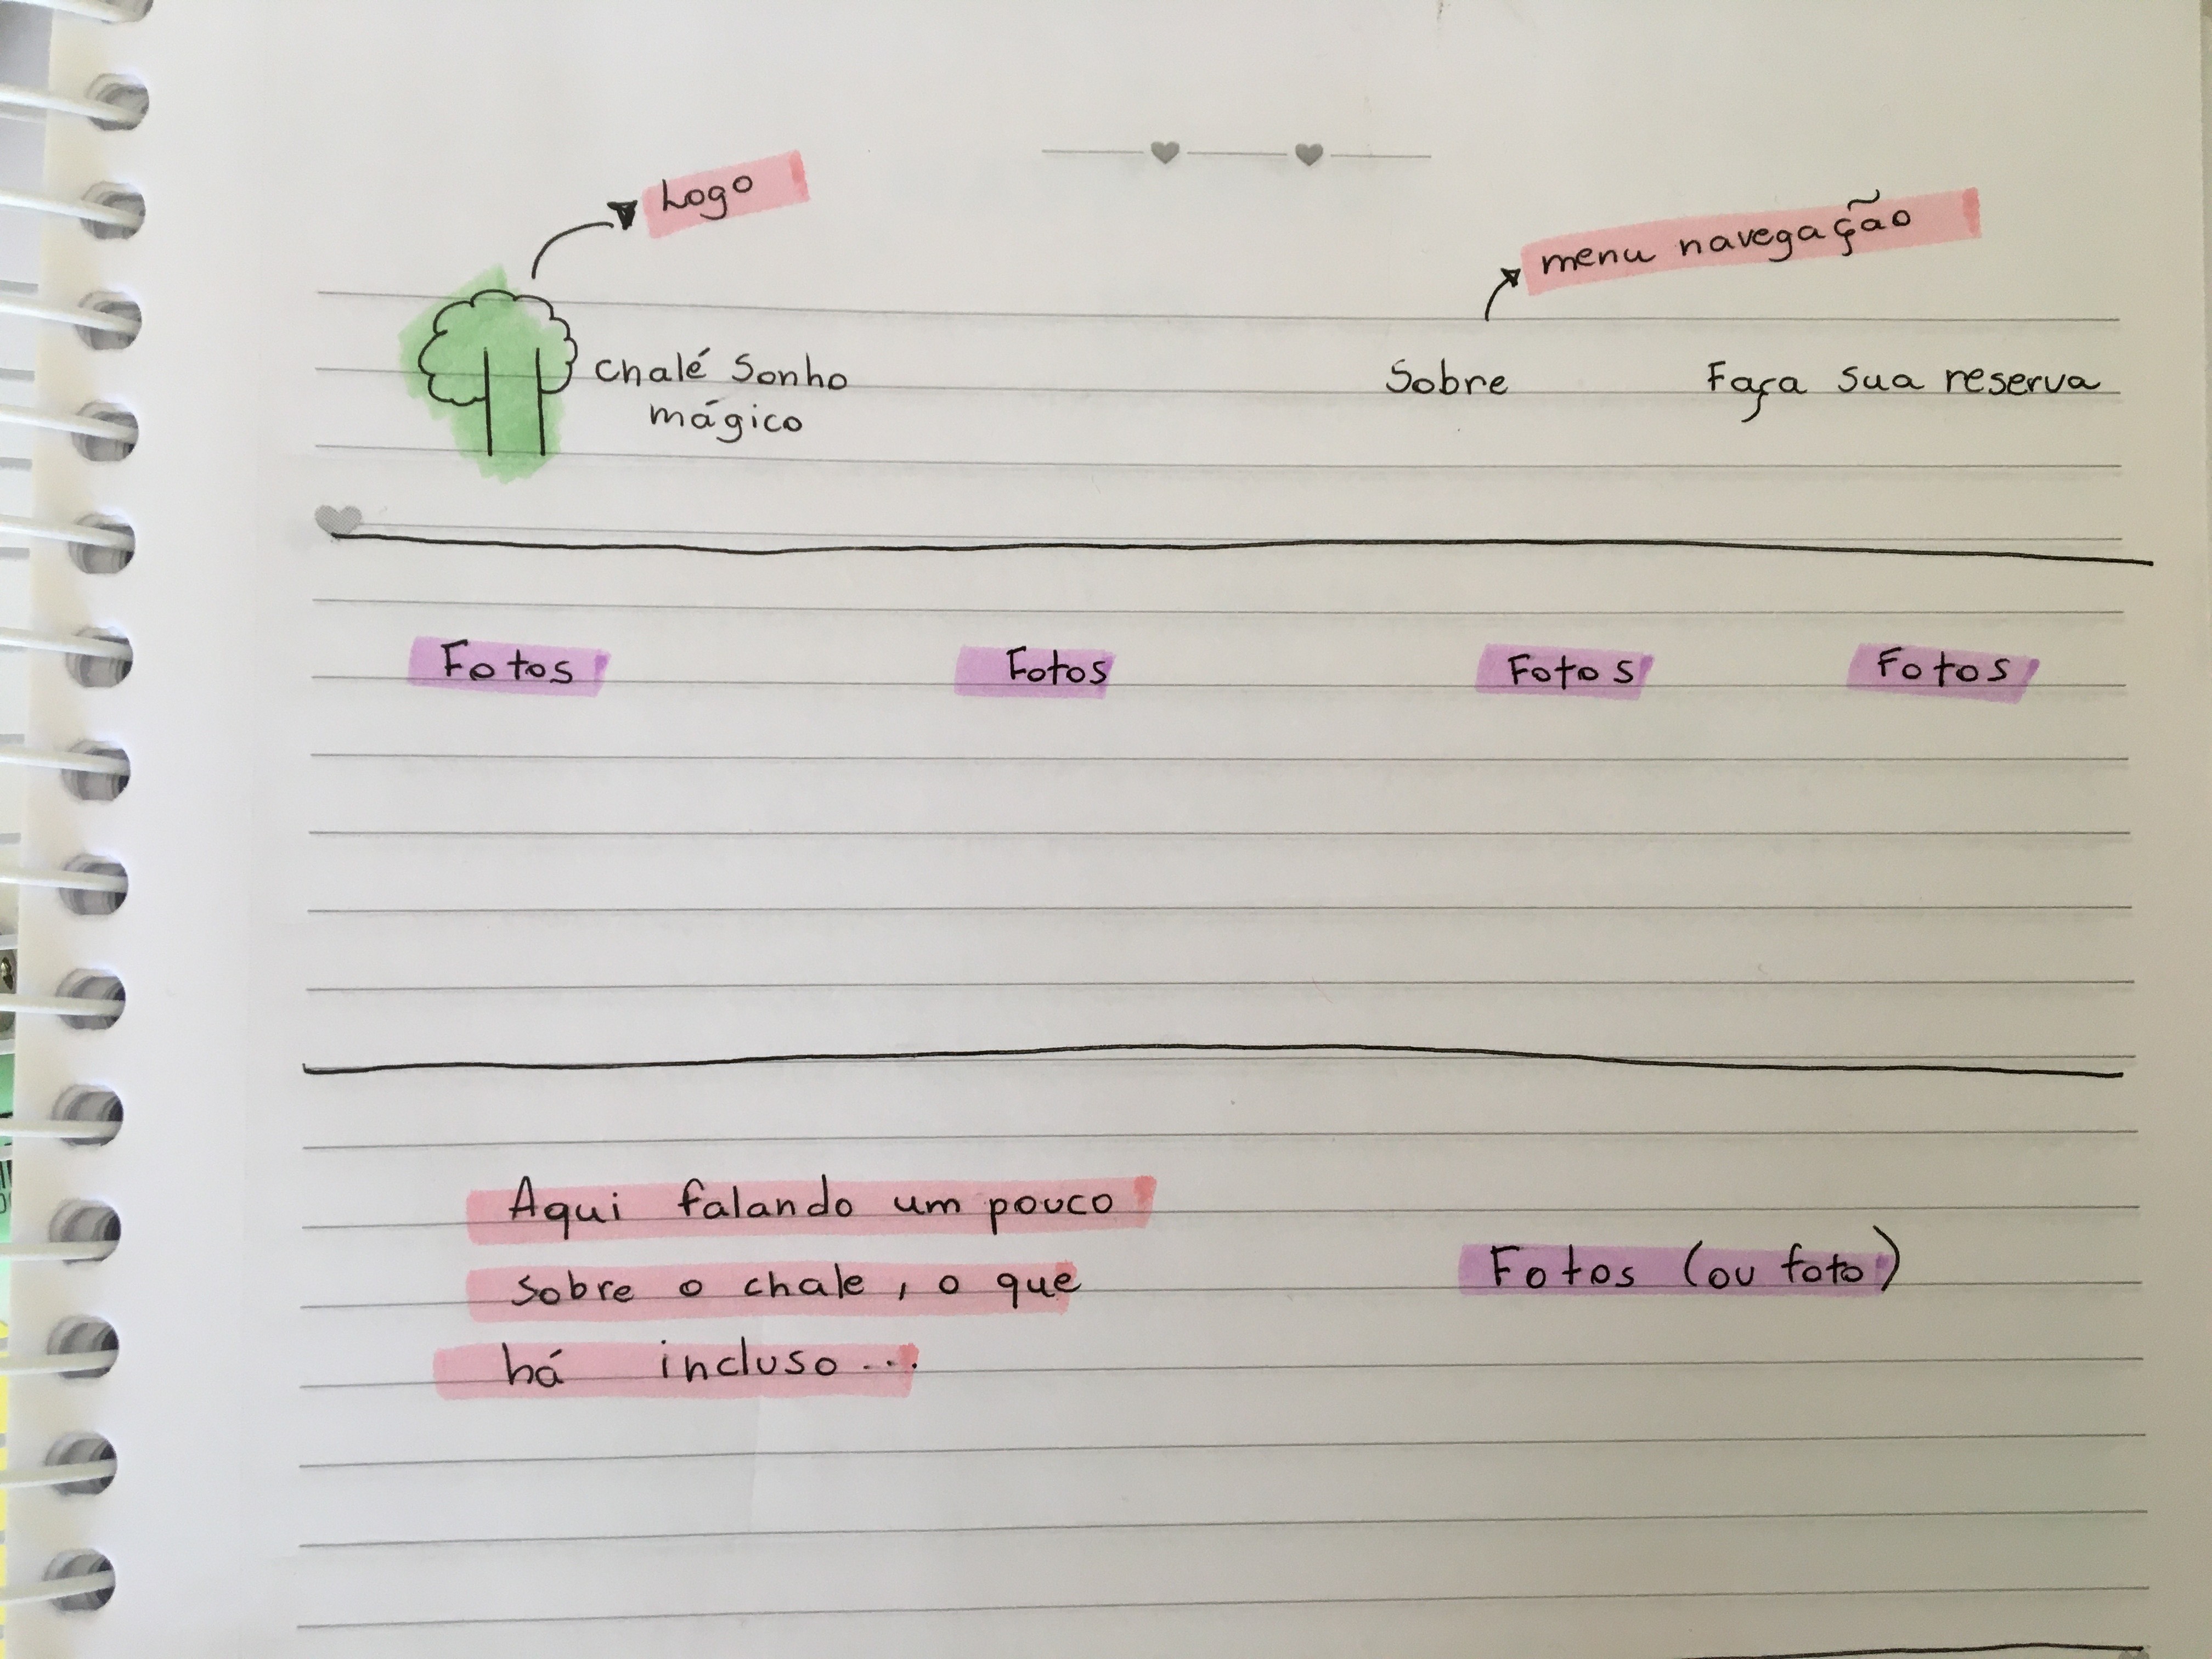 Logo
menu navegação
Chalé Sonho
mágico
Sobre
Faça sua reserva
Fotos
Fotos
Fotos
Fotos
Aqui falando um pouco
sobre o chale, o que
há incluso...
Fotos (ou foto)